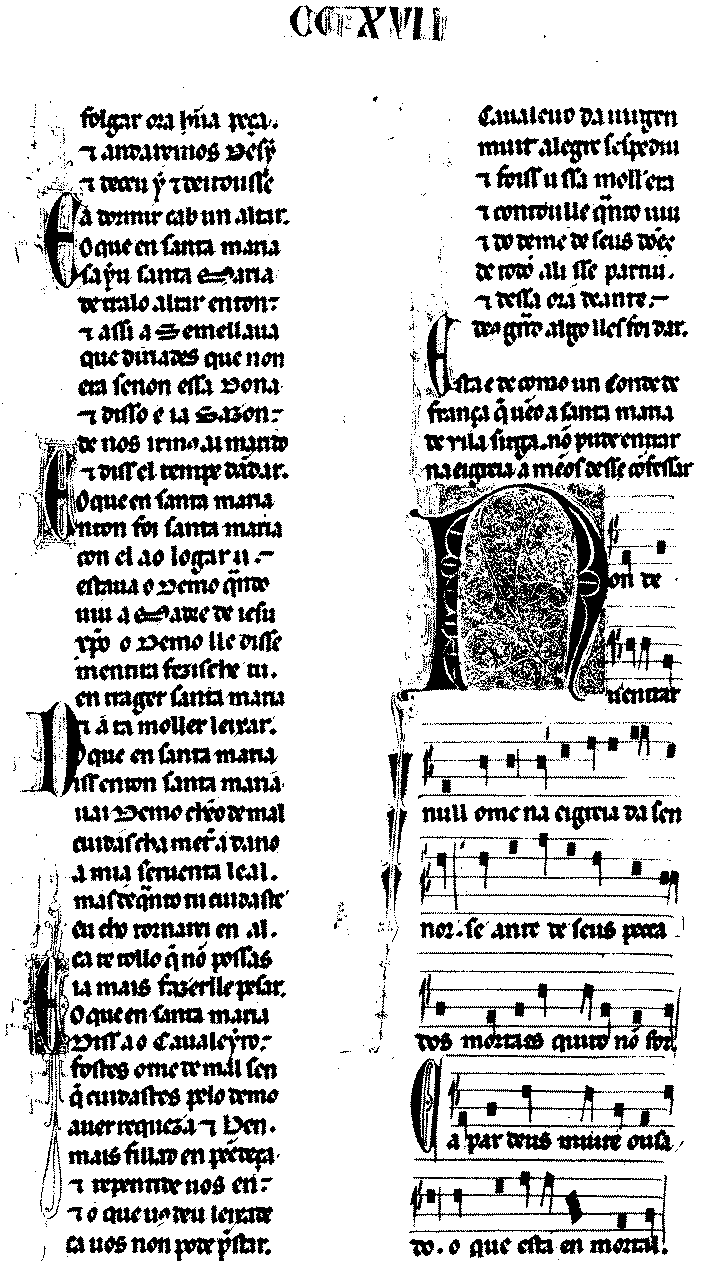 CCXVII
folgar ora hũa peça.
⁊ andaremos Des y
⁊ deceu y ⁊ deitousse
a dormir cab un altar.
O que en santa maria
sayu santa Maria
detralo altar enton:
⁊ assi a Semellaua
que diriades que non
era senon essa Dona
⁊ disso e ia Sazon:
de nos irmos
⁊ diss el tempe dãdar.
O que en santa maria
nton foi santa maria
con el ao logar u
estaua o Demo q̃ndo
uiu a Madre de iesu
xp̃o o Demo lle disse
mentira feziste tu.
en trager santa maria
⁊ a ta moller leixar.
O que en santa maria
iss enton santa maria
uai Demo chẽo de mal
cuidasch a meter a dano
a mia seruenta leal.
mas de q̃nto tu cuidaste
eu cho tornarei en al.
ca te tollo q̃ nõ possas
ia mais fazerlle pesar.
O que en santa maria
Diss ao Caualeyro:
fostes ome de mal sen
q̃ cuidastes pelo demo
auer requeza ⁊ Ben.
mais fillad en pẽedença
⁊ repentide uos en:
⁊ o que uos deu leixade
ca uos non pode p̃star.
Caualeiro da uirgen
muit alegre sespediu
⁊ foiss u ssa moll era
⁊ contoulle q̃nto uiu
⁊ do deme de seus dões
de todo ali sse partiu.
⁊ dessa ora deante
deus grãd algo lles foi dar.
Esta e de como un Conde de
frança q̃ uẽo a santa maria
de uila sirga. nõ pude entrar
na eigreia a mẽos desse cõfessar
Non de
u entrar
null ome na eigreia da sen
nor. se ante de seus peca
dos mortaes quito nõ for.
a par deus muit e ousa
do. o que esta en mortal.